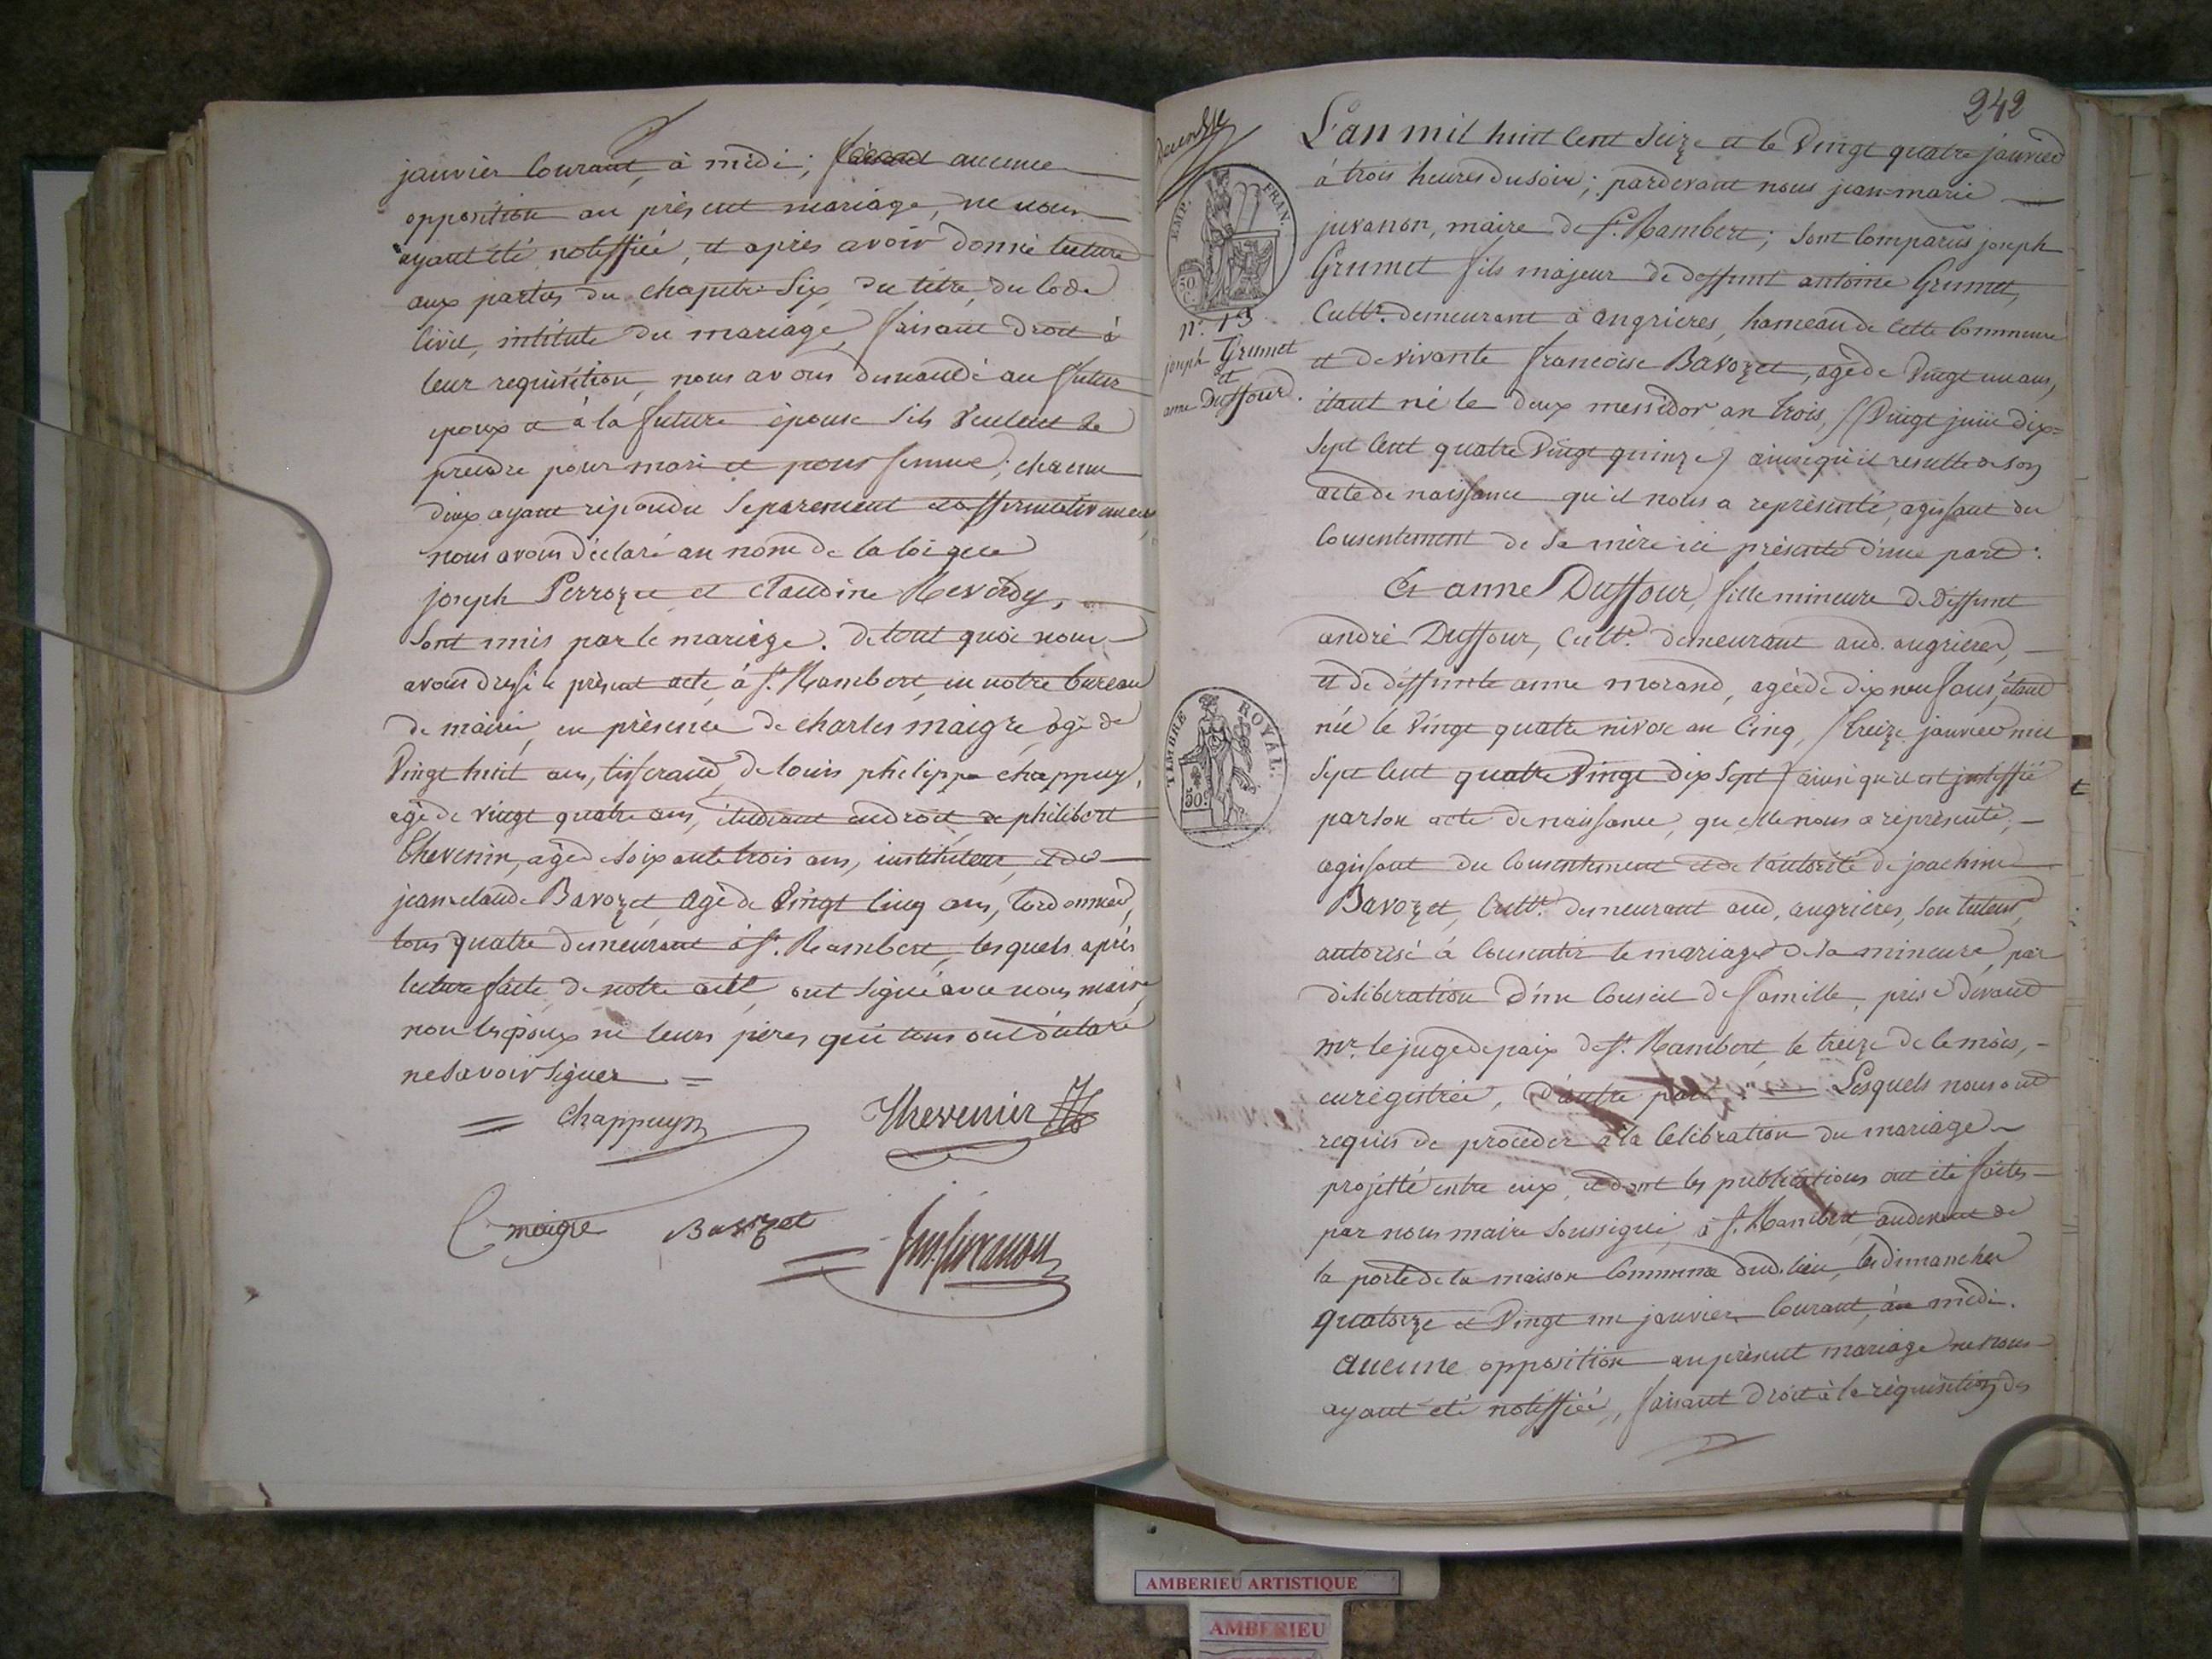 janvier courant, à midi; aucune
opposition au présent mariage, ne nous
ayant été notiffiée, et après avoir donné lecture
aux parties du chapitre Six, du titre du Code
Civil, intitulé du mariage, faisant droit à
leur requisition, nous avons demandé au futur
epoux et à la future épouse s'ils veulent se
prendre pour mari et pour femme; chacun
d'eux ayant répondu séparement et affirmativement,
nous avons déclaré au nom de la loi que
joseph Perrozet et Claudine Reverdy,
Sont unis par le mariage. de tout quoi nous
avons dressé le présent acte, à St. Rambert, en notre bureau
de mairie, en présence de charles maigre, agé de
Vingt huit ans, tisserand, de louis philippe chappuy,
agé de vingt quatre ans, étudiant en droit, de philibert
Thevenin, agé de soixante trois ans, instituteur, et de
jean claude Bavozet, agé de Vingt cinq ans, Cordonnier,
tous quatre demeurant à St. Rambert, lesquels après
lecture faite de notre acte, ont signé avec nous maire,
non les époux ni leurs pères qui tous ont déclaré
ne savoir signer
Chappuys Thevenin
C. maigre Bavozet
Jm. Juvanon
242
L'an mil huit cent Seize et le Vingt quatre janvier
à trois heures du soir; pardevant nous jean-marie
juvanon, maire de St. Rambert; sont comparus joseph
Grumet fils majeur de deffunt antoine Grumet,
Cultr. demeurant à angrieres, hameau de Cette Commune
et de vivante francoise Bavozet, agé de Vingt un ans,
étant né le deux messidor an trois, (Vingt juin dix=
sept cent quatre Vingt quinze) ainsi qu'il resulte de son
acte de naissance qu'il nous a représenté, agissant du
Consentement de sa mère ici présente d'une part.
Et anne Duffour, fille mineure de deffunt
andré Duffour, Cultr. demeurant aud. angrieres,
et de deffunte anne morand, agée de dix neuf ans, étant
née le Vingt quatre nivose an Cinq, (treize janvier mil
sept cent quatre Vingt dix sept) ainsi qu'il est justiffié
par son acte de naissance, qu'elle nous a représenté,
agissant du Consentement et de l'autorité de joachim
Bavozet, Cultr. demeurant aud. angrieres, son tuteur,
autorisé à Consentir le mariage de sa mineure, par
déliberation d'un Conseil de famille, prise devant
mr. le juge de paix de St. Rambert, le treize de ce mois,
enregistrée, d'autre part. Lesquels nous ont
requis de procéder à la Célébration du mariage
projetté entre eux, et dont les publications ont été faites
par nous maire soussigné, à St. Rambert, audevant de
la porte de la maison Commune dud. lieu, les dimanches
quatorze et Vingt un janvier Courant, à midi.
aucune opposition au présent mariage ne nous
ayant été notiffiée, faisant droit à la réquisition des
EMP. FRAN.
50 C.
n°. 13
joseph Grumet
et
anne Duffour.
TIMBRE ROYAL.
50 c
AMBERIEU ARTISTIQUE
AMBERIEU